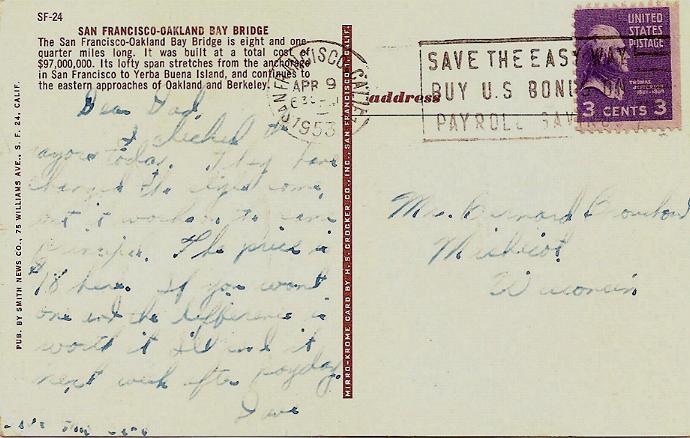 SF-24
SAN FRANCISCO-OAKLAND BAY BRIDGE
The San Francisco-Oakland Bay Bridge is eight and one-
quarter miles long. It was built at a total cost of
$97,000,000. Its lofty span stretches from the anchorage
in San Francisco to Yerba Buena Island, and continues to
the eastern approaches of Oakland and Berkeley.
Dear Dad,
I checked
today. They have
changed the
but it works on the same
The price is
$98 here. If you want
one and the difference is
worth it I'll send it
next week after payday.
Dave
PUB. BY SMITH NEWS CO., 75 WILLIAMS AVE., S. F. 24, CALIF.
MIRRO-KROME CARD BY H. S. CROCKER CO., INC., SAN FRANCISCO 1, CALIF.
address
SAN FRANCISCO, CALIF.
APR 9
1953
SAVE THE EASY WAY
BUY U.S BONDS ON
PAYROLL SAVINGS
UNITED
STATES
POSTAGE
THOMAS
JEFFERSON
3 CENTS 3
Mr. Bernard
Mishicot
Wisconsin